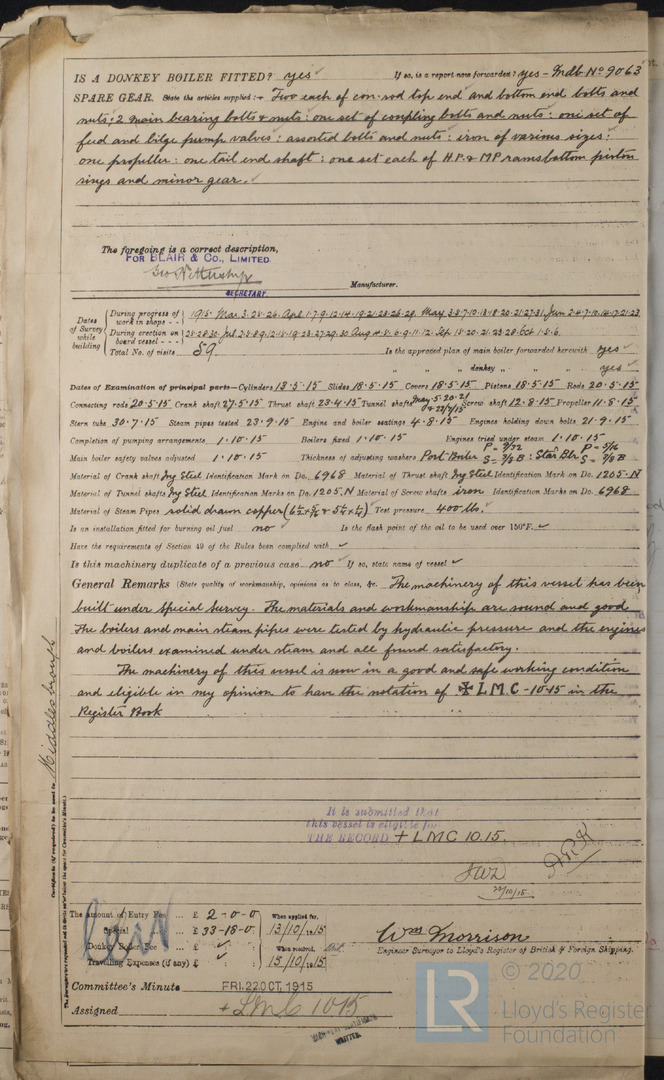 IS A DONKEY BOILER FITTED? yes If so, is a report now forwarded? yes - Mdb. No 9063
SPARE GEAR. State the articles supplied:— Two each of con-rod top end and bottom end bolts and
nuts: 2 main bearing bolts & nuts: one set of coupling bolts and nuts: one set of
feed and bilge pump valves: assorted bolts and nuts: iron of various sizes:
one propeller: one tail end shaft: one set each of H.P. & MP ramsbottom piston
rings and minor gear.
The foregoing is a correct description,
FOR BLAIR & Co., LIMITED.
SECRETARY. Manufacturer.
Dates of Survey while building
During progress of work in shops - - 1915. Mar 3.23.26. Apl 1.7.9.12.14.19.21.23.26.29. May 3.5.7.10.13.18.20.21.27.31. Jun 2.4.7.10.14.17.21.23
During erection on board vessel - - - 25.28.30. Jul 2.5.8.9.12.15.19.23.27.29.30 Aug 4.5.6.9.11.12. Sep 15.20.21.23.28. Oct 1.5.6.
Total No. of visits 59. Is the approved plan of main boiler forwarded herewith yes
" " " donkey " " " yes
Dates of Examination of principal parts—Cylinders 13.5.15 Slides 18.5.15 Covers 18.5.15 Pistons 18.5.15 Rods 20.5.15
Connecting rods 20.5.15 Crank shaft 27.5.15 Thrust shaft 23.4.15 Tunnel shafts May 5.20.21 & 23/7/15 Screw shaft 12.8.15 Propeller 11.8.15
Stern tube 30.7.15 Steam pipes tested 23.9.15 Engine and boiler seatings 4.8.15 Engines holding down bolts 21.9.15
Completion of pumping arrangements 1.10.15 Boilers fixed 1.10.15 Engines tried under steam 1.10.15
Main boiler safety valves adjusted 1.10.15 Thickness of adjusting washers Port Boiler P = 9/32 S = 3/8 B: Star Blr P = 5/16 S = 3/8 B
Material of Crank shaft Ing Steel Identification Mark on Do. 6968 Material of Thrust shaft Ing Steel Identification Mark on Do. 1205.N
Material of Tunnel shafts Ing Steel Identification Marks on Do. 1205.N Material of Screw shafts iron Identification Marks on Do. 6968
Material of Steam Pipes solid drawn copper Test pressure 400 lbs.
Is an installation fitted for burning oil fuel no Is the flash point of the oil to be used over 150°F.
Have the requirements of Section 49 of the Rules been complied with
Is this machinery duplicate of a previous case no If so, state name of vessel
General Remarks (State quality of workmanship, opinions as to class, &c. The machinery of this vessel has been
built under Special Survey. The materials and workmanship are sound and good
The boilers and main steam pipes were tested by hydraulic pressure and the engines
and boilers examined under steam and all found satisfactory.
The machinery of this vessel is now in a good and safe working condition
and eligible in my opinion to have the notation of ✠ L.M.C - 10.15 in the
Register Book
Middlesbrough
Certificate (if required) to be sent to
It is submitted that
this vessel is eligible for
THE RECORD + LMC 10.15.
22/10/15
The amount of Entry Fee ... £ 2-0-0 When applied for,
Special ... £ 33-18-0 13/10/1915
Donkey Boiler Fee ... £ When received,
Travelling Expenses (if any) £ 15/10/1915
Wm Morrison
Engineer Surveyor to Lloyd's Register of British & Foreign Shipping.
Committee's Minute FRI. 22 OCT. 1915
Assigned + LMC 10.15
WRITTEN.
LR © 2020
Lloyd's Register
Foundation